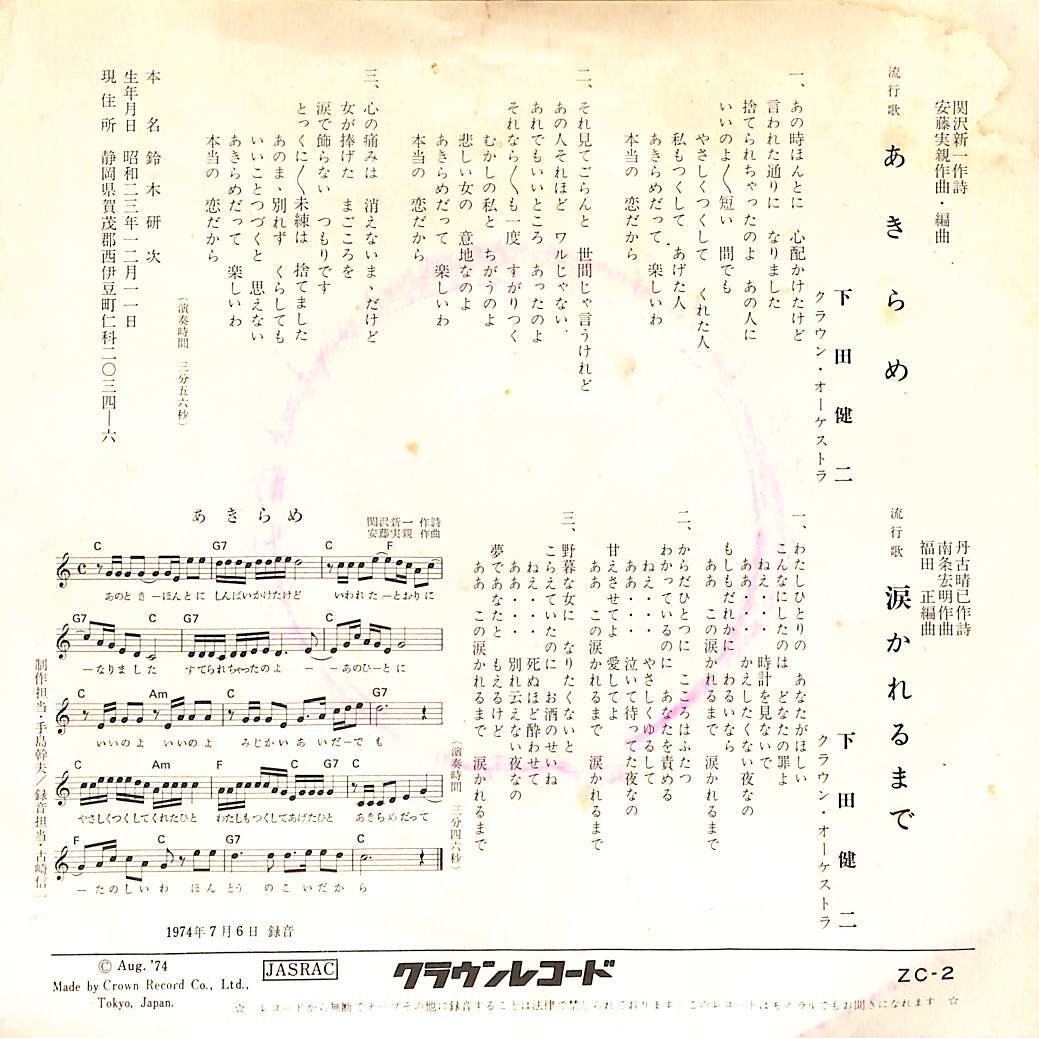 関沢新一作詩
安藤実親作曲・編曲
流行歌
あきらめ
下田健二
クラウン・オーケストラ
一、あの時ほんとに 心配かけたけど
言われた通りに なりました
捨てられちゃったのよ あの人に
いいのよ〳〵短い 間でも
やさしくつくして くれた人
私もつくして あげた人
あきらめだって 楽しいわ
本当の 恋だから
二、それ見てごらんと 世間じゃ言うけれど
あの人それほど ワルじゃない
あれでもいいところ あったのよ
それなら〳〵も一度 すがりつく
むかしの私と ちがうのよ
悲しい女の 意地なのよ
あきらめだって 楽しいわ
本当の 恋だから
三、心の痛みは 消えないまゝだけど
女が捧げた まごころを
涙で飾らない つもりです
とっくに〳〵未練は 捨てました
あのまゝ別れず くらしても
いいことつづくと 思えない
あきらめだって 楽しいわ
本当の 恋だから
(演奏時間 三分五六秒)
本名 鈴木研次
生年月日 昭和二三年一二月一一日
現住所 静岡県賀茂郡西伊豆町仁科二〇三四―六
丹古晴己作詩
南条宏明作曲
福田 正編曲
流行歌
涙かれるまで
下田健二
クラウン・オーケストラ
一、わたしひとりの あなたがほしい
こんなにしたのは どなたの罪よ
ねえ・・・ 時計を見ないで
ああ・・・ かえしたくない夜なの
もしもだれかに かわるいなら
ああ この涙かれるまで 涙かれるまで
二、からだひとつに こころはふたつ
わかっているのに あなたを責める
ねえ・・・ やさしくゆるして
ああ・・・ 泣いて待ってた夜なの
甘えさせてよ 愛してよ
ああ この涙かれるまで 涙かれるまで
三、野暮な女に なりたくないと
こらえていたのに お酒のせいね
ねえ・・・ 死ぬほど酔わせて
ああ・・・ 別れ云えない夜なの
夢であなたと もえるけど
ああ この涙かれるまで 涙かれるまで
(演奏時間 三分四六秒)
あきらめ
関沢新一 作詩
安藤実親 作曲
C G7 C F
あのとき ーほんとに しんぱいかけたけど いわれた ーとおりに
G7 C G7 C
ーなりました すてられちゃったのよ ーーあのひーとに
C Am C G7
いいのよ いいのよ みじかい あいだーでも
C Am F C G7 C
やさしくつくしてくれたひと わたしもつくしてあげたひと あきらめだって
F C G7 C
ーたのしいわ ほんとう のこいだから
制作担当・手島幹夫/録音担当・古崎信一
1974年7月6日 録音
© Aug. '74
Made by Crown Record Co., Ltd.,
Tokyo, Japan.
JASRAC
クラウンレコード
ZC-2
☆ レコードから無断でテープその他に録音することは法律で禁じられております。このレコードはモノラルでもお聞きになれます ☆